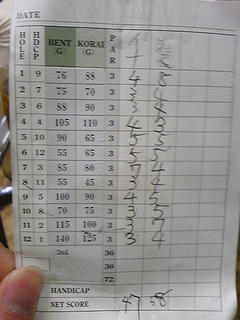 DATE
HOLE HDCP BENT (G) KORAI (G) PAR
1 9 76 88 3 4 8
2 7 75 70 3
3 6 88 90 3
4 4 105 110 3 4
5 10 90 65 3 5 5
6 12 55 65 3 5 5
7 3 85 80 3 7 4
8 11 55 45 3 3 4
9 5 100 90 3 4 5
10 8 70 75 3 3 5
11 2 115 100 3 3 7
12 1 140 125 3 3 4
2nd 36
36
72
HANDICAP
NET SCORE 47 58